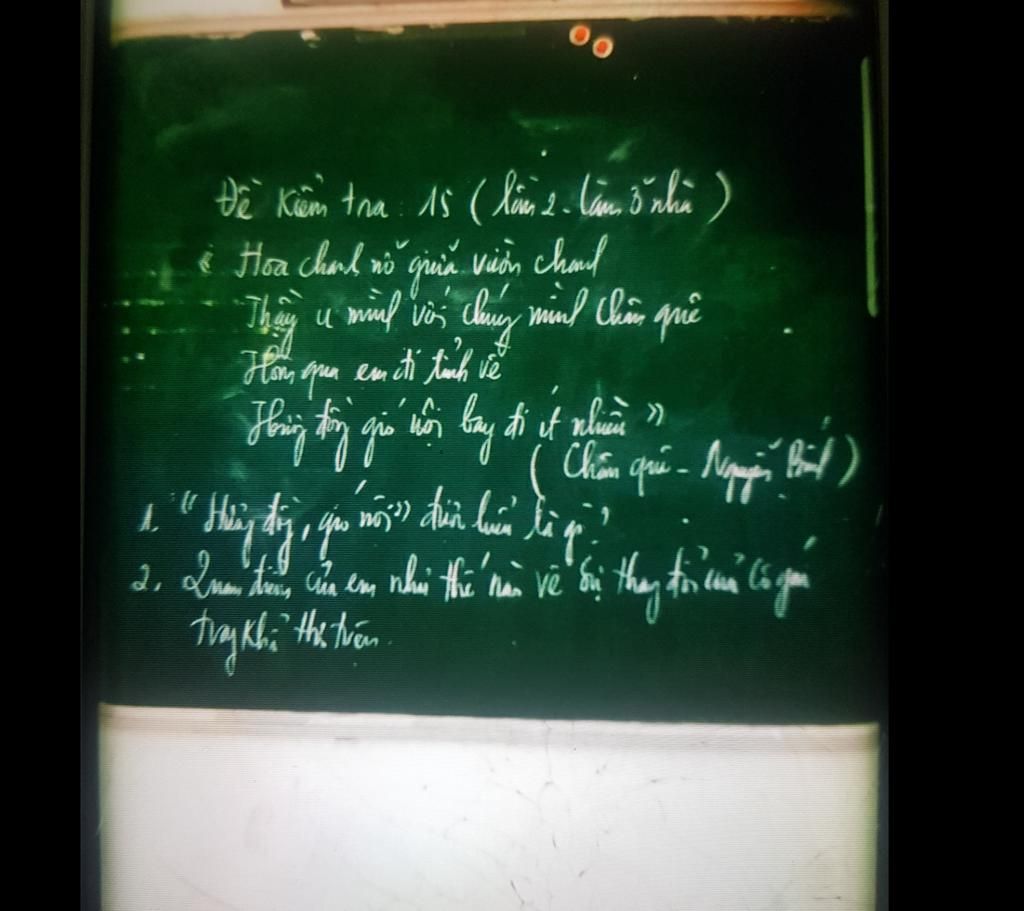 Đề kiểm tra 15 (lần 2 - làm ở nhà)
“Hoa chanh nở giữa vườn chanh
Thầy u mình với chúng mình chân quê
Hôm qua em đi tỉnh về
Hương đồng gió nội bay đi ít nhiều”
(Chân quê - Nguyễn Bính)
1. “Hương đồng, gió nội” được hiểu là gì?
2. Quan điểm của em như thế nào về sự thay đổi của cô gái
trong khổ thơ trên.